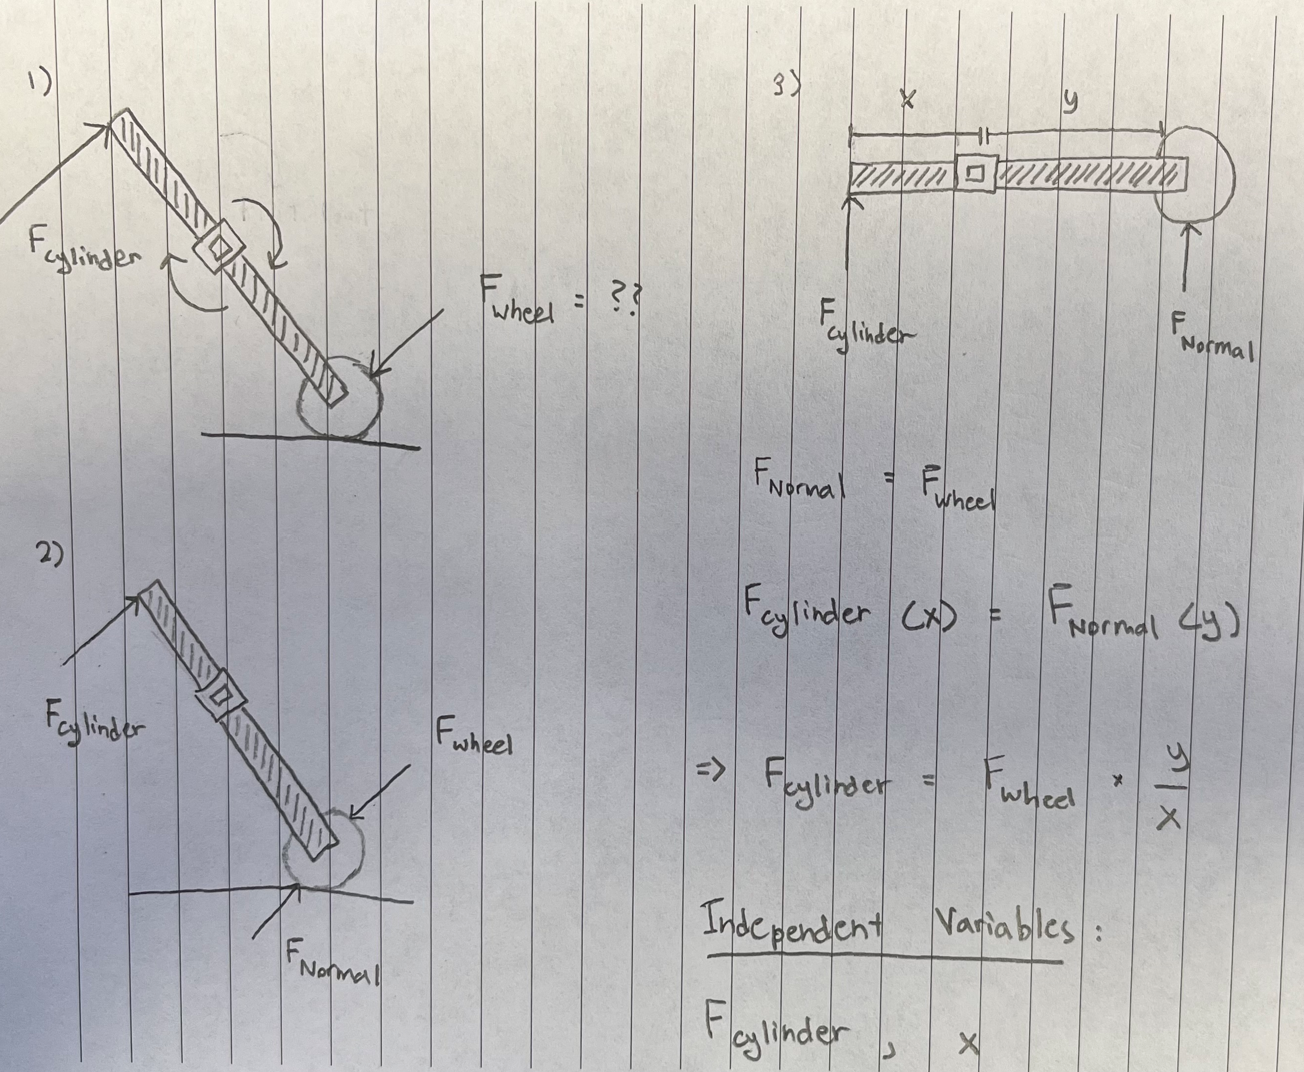 1)
F cylinder
F wheel = ??
2)
F cylinder
F wheel
F Normal
3)
x y
F cylinder
F Normal
F Normal = F wheel
F cylinder (x) = F Normal (y)
=> F cylinder = F wheel × y/x
Independent Variables :
F cylinder , x